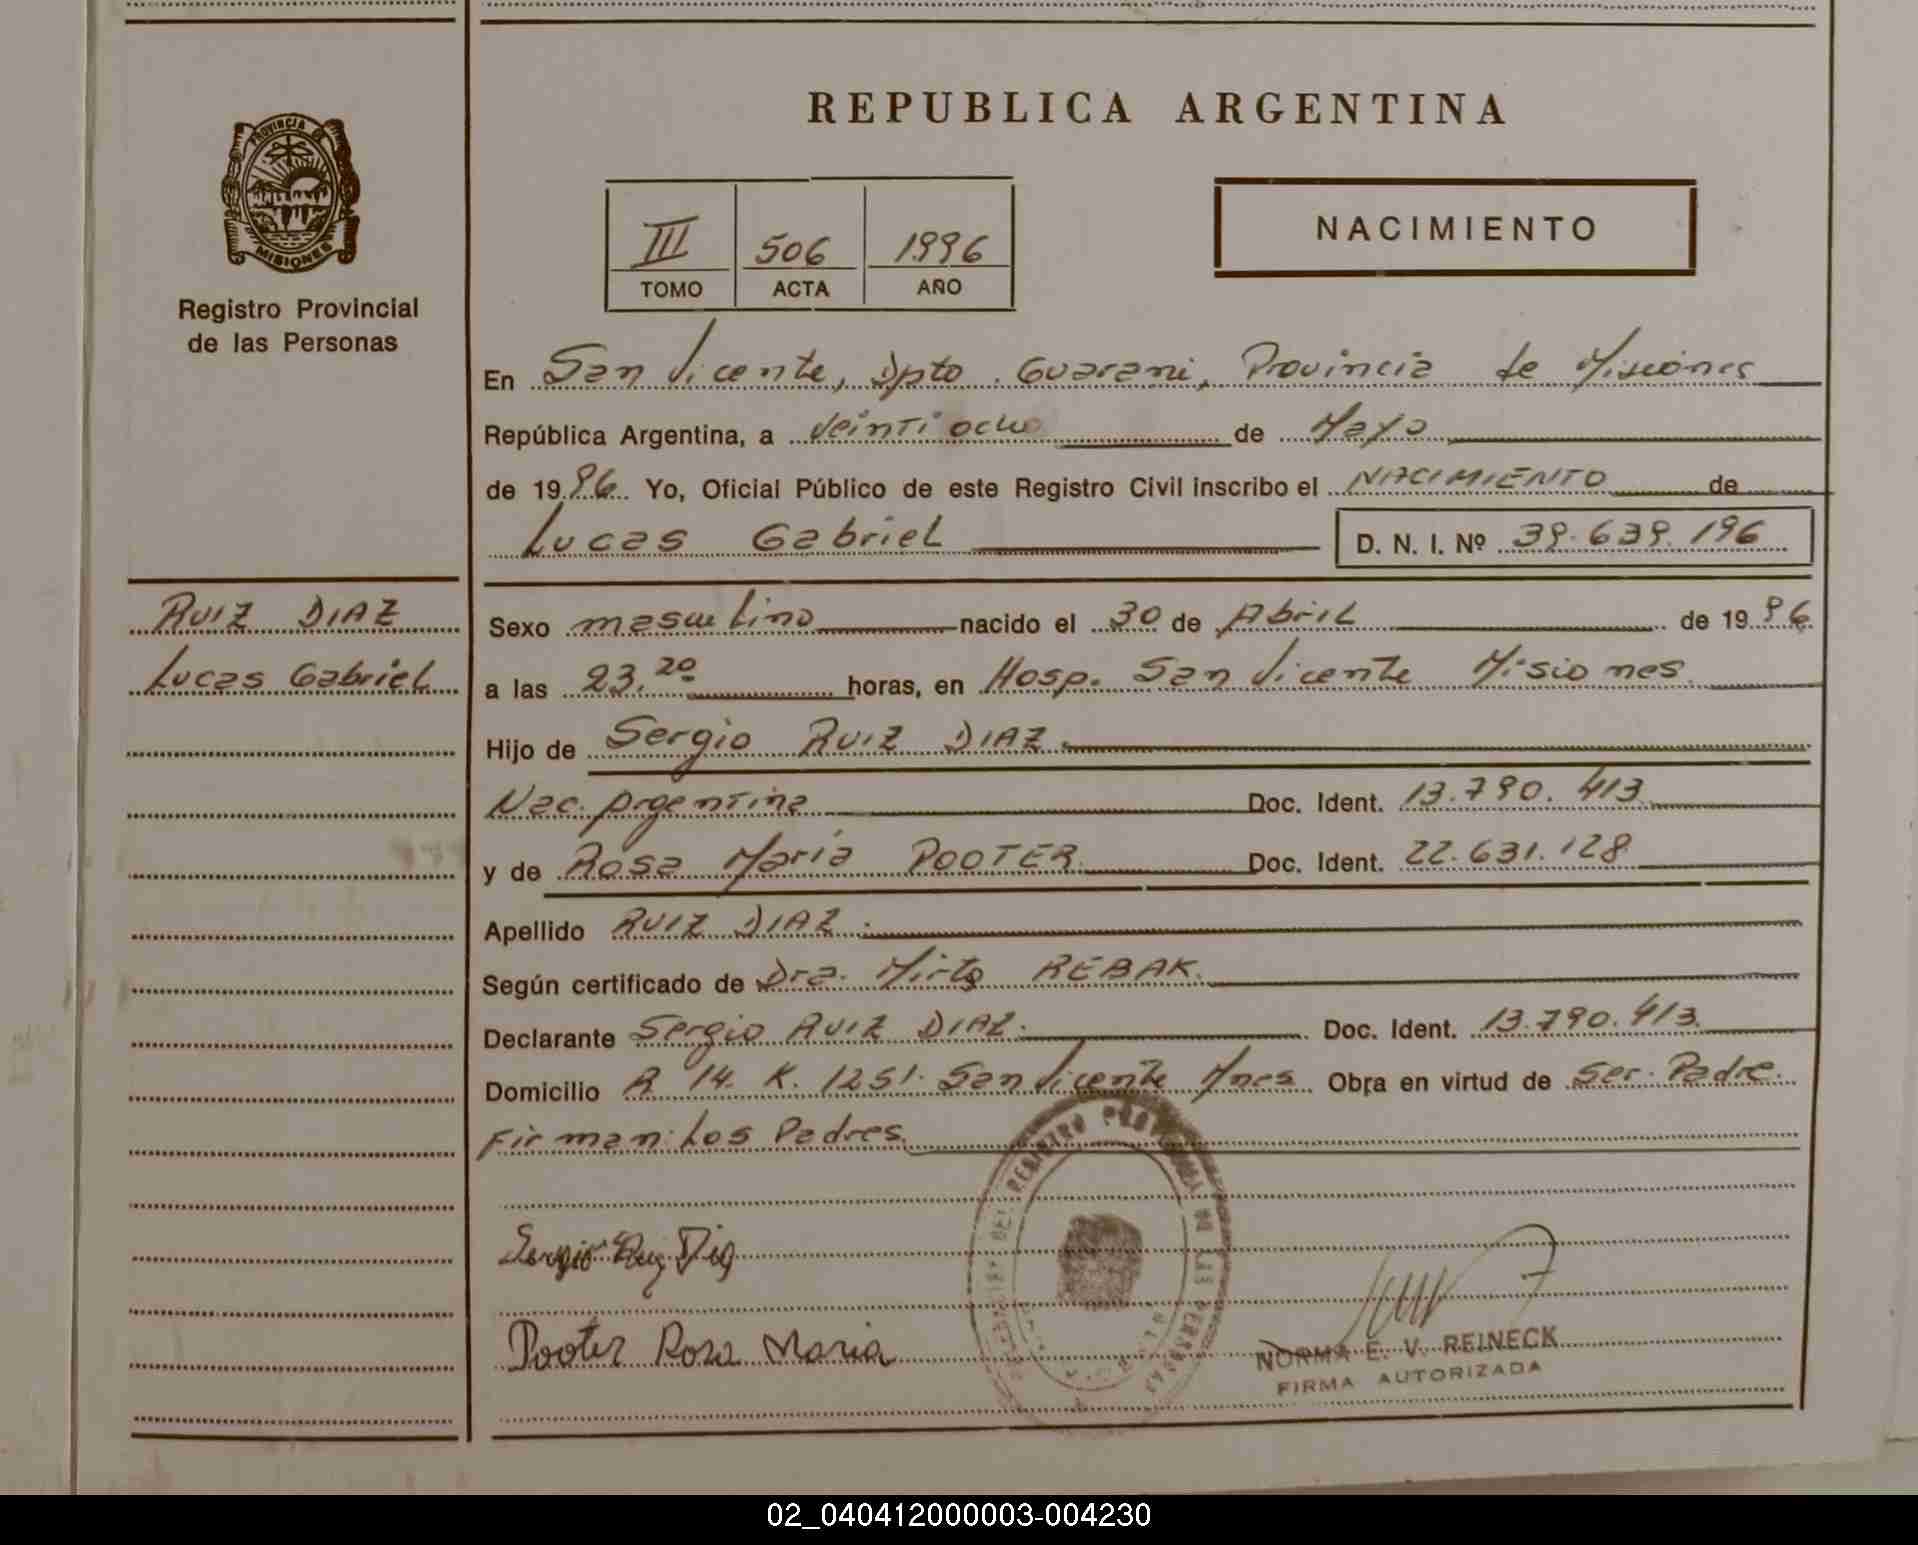 PROVINCIA DE
MISIONES
Registro Provincial
de las Personas
RUIZ DIAZ
Lucas Gabriel
REPUBLICA ARGENTINA
III 506 1996
TOMO ACTA AÑO
NACIMIENTO
En San Vicente, Dpto. Guarani, Provincia de Misiones
República Argentina, a veintiocho de Mayo
de 1996 Yo, Oficial Público de este Registro Civil inscribo el NACIMIENTO de
Lucas Gabriel D. N. I. Nº 39.639.196
Sexo masculino nacido el 30 de Abril de 1996
a las 23.20 horas, en Hosp. San Vicente Misiones.
Hijo de Sergio RUIZ DIAZ.
Nac. Argentina Doc. Ident. 13.790.413
y de Rosa María POOTER Doc. Ident. 22.631.128
Apellido RUIZ DIAZ.
Según certificado de Dra. Mirta REBAK.
Declarante Sergio RUIZ DIAZ. Doc. Ident. 13.790.413
Domicilio R. 14. K. 1251. San Vicente Mnes Obra en virtud de Ser. Padre.
Firman: Los Padres.
Sergio Ruiz Diaz
Pooter Rosa Maria
NORMA E. V. REINECK
FIRMA AUTORIZADA
02_040412000003-004230